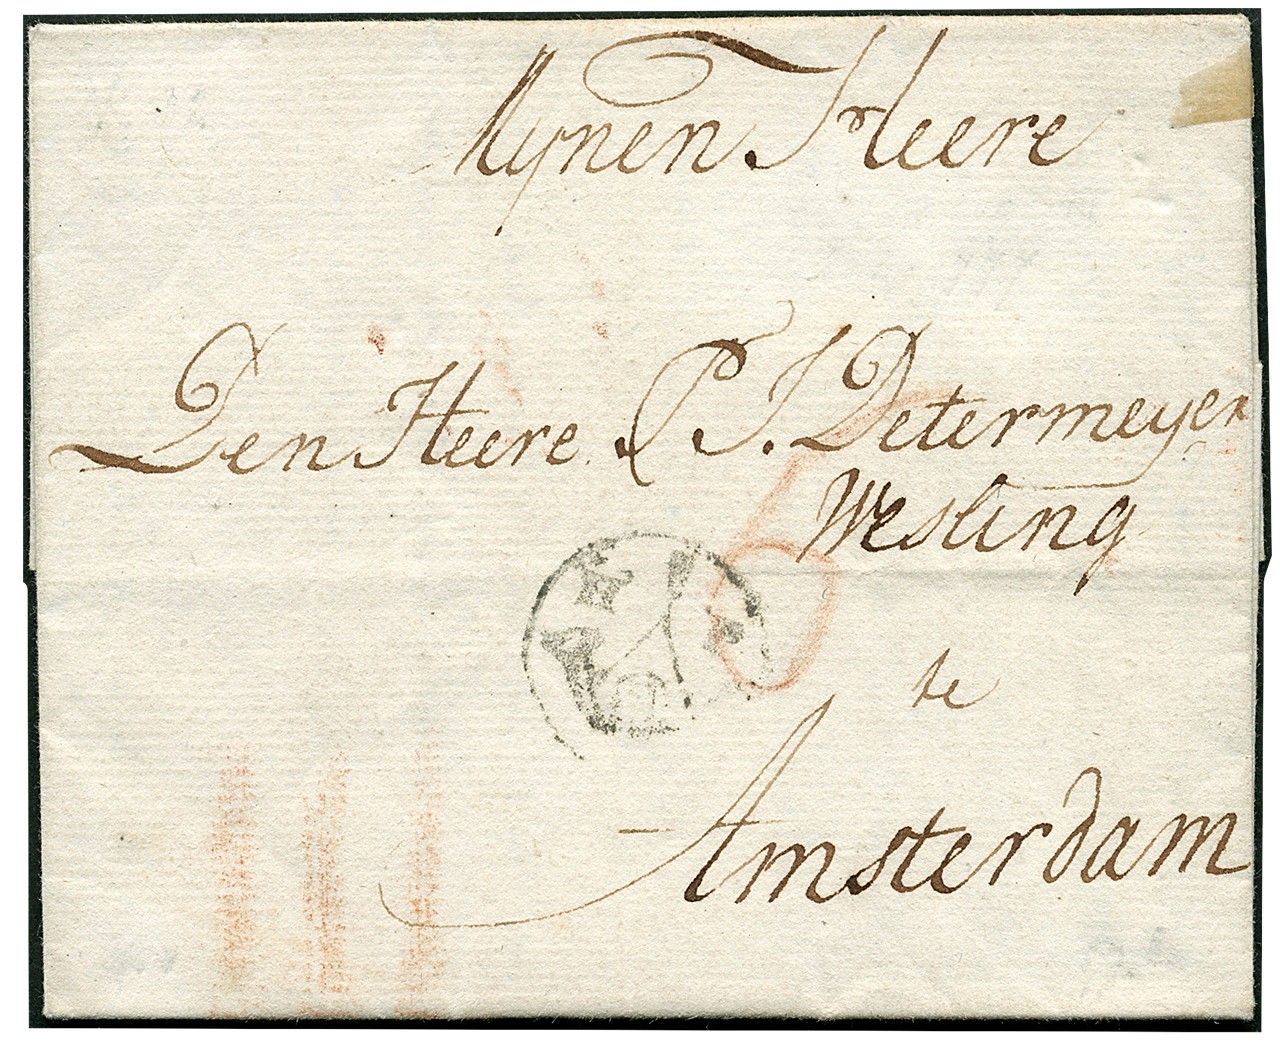 Mynen Heere
Den Heere P J Determeyer
Wesling
te
Amsterdam